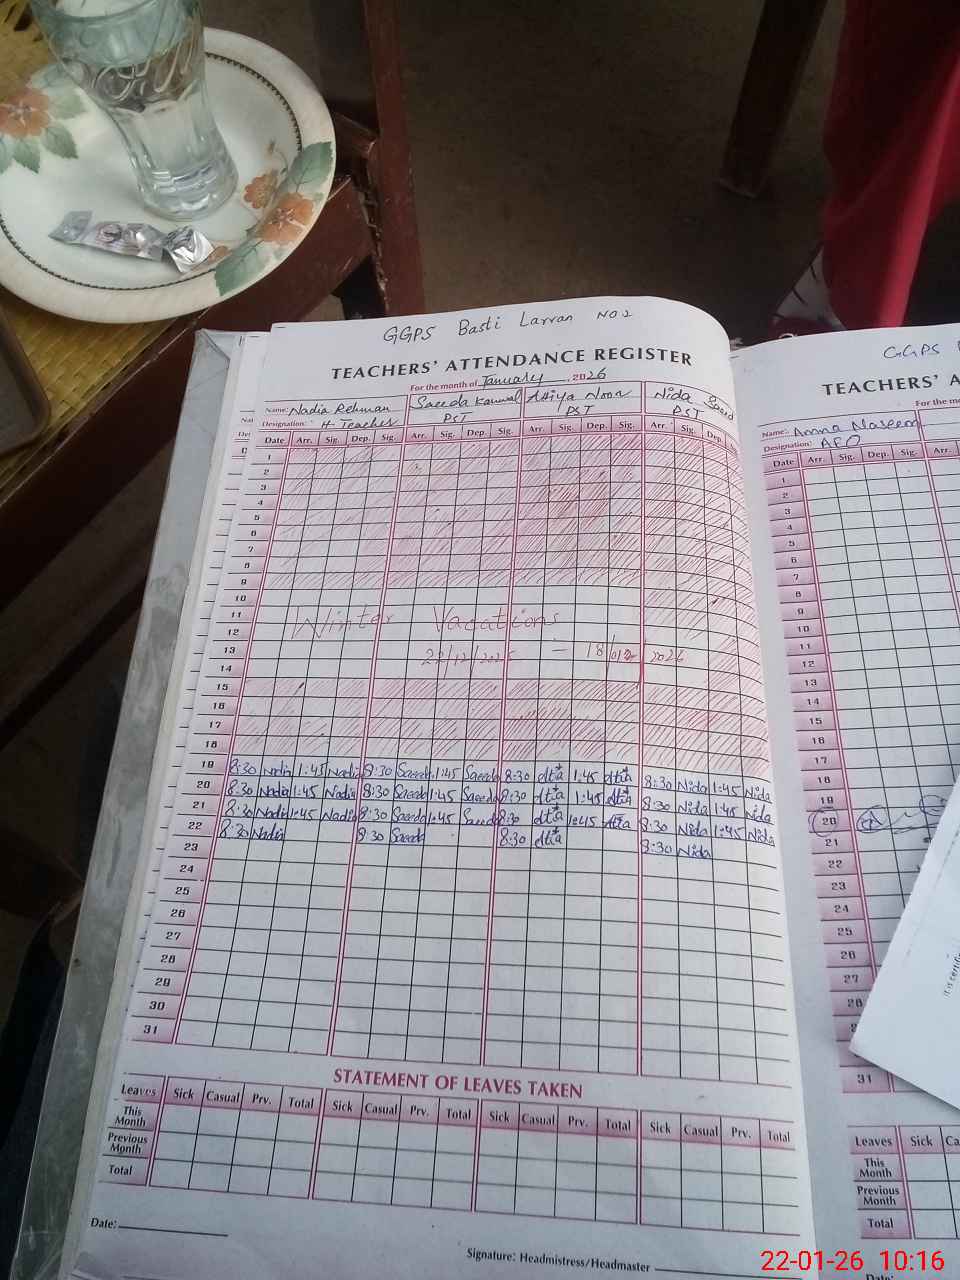 GGPS Basti Larran No 2
TEACHERS' ATTENDANCE REGISTER
For the month of January, 2026
Name: Nadia Rehman Saeeda Kanwal Attiya Noor Nida Saeed
Designation: H-Teacher PST PST PST
Date Arr. Sig. Dep. Sig. Arr. Sig. Dep. Sig. Arr. Sig. Dep. Sig. Arr. Sig. Dep.
1
2
3
4
5
6
7
8
9
10
11
Winter Vacations
12
13
22/12/2025 – 18/01/2026
14
15
16
17
18
19 8:30 Nadia 1:45 Nadia 8:30 Saeeda 1:45 Saeeda 8:30 Attia 1:45 Attia 8:30 Nida 1:45 Nida
20 8:30 Nadia 1:45 Nadia 8:30 Saeeda 1:45 Saeeda 8:30 Attia 1:45 Attia 8:30 Nida 1:45 Nida
21 8:30 Nadia 1:45 Nadia 8:30 Saeeda 1:45 Saeeda 8:30 Attia 1:45 Attia 8:30 Nida 1:45 Nida
22 8:30 Nadia 8:30 Saeeda 8:30 Attia 8:30 Nida
23
24
25
26
27
28
29
30
31
STATEMENT OF LEAVES TAKEN
Leaves Sick Casual Prv. Total Sick Casual Prv. Total Sick Casual Prv. Total Sick Casual Prv. Total
This Month
Previous Month
Total
Date:
Signature: Headmistress/Headmaster
GGPS
TEACHERS' A
For the mo
Name: Amna Naseem
Designation: AEO
Date Arr. Sig. Dep. Sig. Arr.
1
2
3
4
5
6
7
8
9
10
11
12
13
14
15
16
17
18
19
20
21
22
23
24
25
26
27
28
31
Leaves Sick Ca
This Month
Previous Month
Total
Date:
22-01-26 10:16